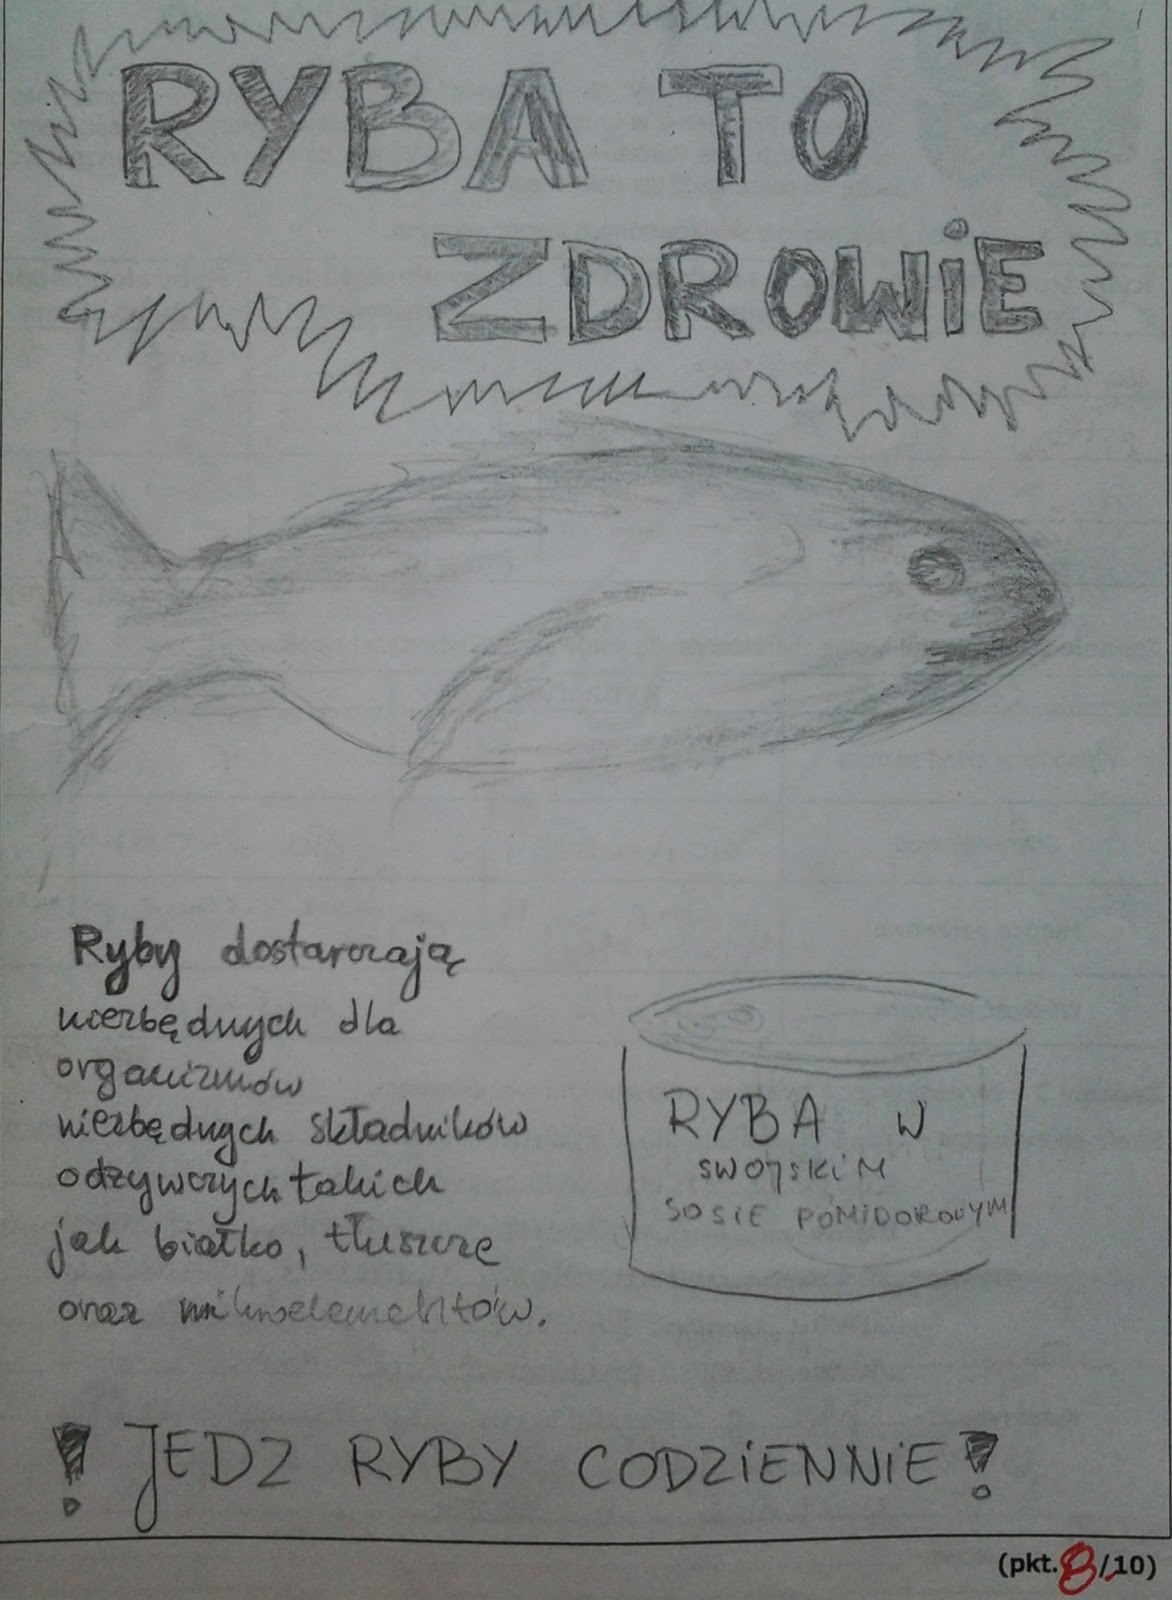 RYBA TO
ZDROWiE
Ryby dostarczają
niezbędnych dla
organizmów
niezbędnych składników
odżywczych takich
jak białko, tłuszcze
oraz mikroelementów.
RYBA W
SWOJSKiM
SOSIE POMIDOROWYM
! JEDZ RYBY CODZiENNiE !
(pkt. 8/10)